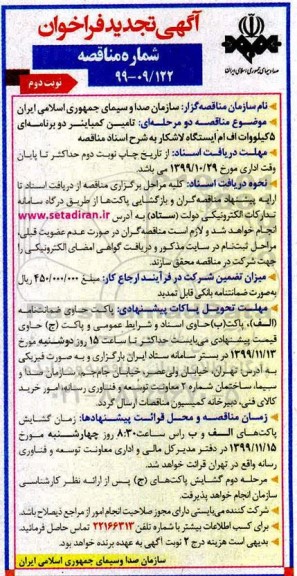 آگهی تجدید فراخوان
شماره مناقصه
۹۹-۰۹/۱۲۲
نوبت دوم
صدا و سیمای جمهوری اسلامی ایران
نام سازمان مناقصه‌گزار: سازمان صدا و سیمای جمهوری اسلامی ایران
موضوع مناقصه دو مرحله‌ای: تامین کمباینر دو برنامه‌ای
۵ کیلووات اف ام ایستگاه لاشکار به شرح اسناد مناقصه
مهلت دریافت اسناد: از تاریخ چاپ نوبت دوم حداکثر تا پایان
وقت اداری مورخ ۱۳۹۹/۱۰/۲۹ می باشد.
نحوه دریافت اسناد: کلیه مراحل برگزاری مناقصه از دریافت اسناد تا
ارایه پیشنهاد مناقصه‌گران و بازگشایی پاکت‌ها از طریق درگاه سامانه
تدارکات الکترونیکی دولت (ستاد) به آدرس www.setadiran.ir
انجام خواهد شد و لازم است مناقصه‌گران در صورت عدم عضویت قبلی،
مراحل ثبت‌نام در سایت مذکور و دریافت گواهی امضای الکترونیکی را
جهت شرکت در مناقصه محقق سازند.
میزان تضمین شرکت در فرآیند ارجاع کار: مبلغ ۴۵۰/۰۰۰/۰۰۰ ریال
به صورت ضمانتنامه بانکی قابل تمدید
مهلت تحویل پاکات پیشنهادی: پاکت حاوی ضمانتنامه
(الف)، پاکت (ب) حاوی اسناد و شرایط عمومی و پاکت (ج) حاوی
قیمت پیشنهادی می‌بایست حداکثر تا ساعت ۱۵ روز دوشنبه مورخ
۱۳۹۹/۱۱/۱۳ در بستر سامانه ستاد ایران بارگزاری و به صورت فیزیکی
به آدرس تهران، خیابان ولی‌عصر، خیابان جام‌جم، سازمان صدا و
سیما، ساختمان شماره ۲ معاونت توسعه و فناوری رسانه، امور خرید
کالای فنی، دبیرخانه کمیسیون مناقصات ارسال گردد.
زمان مناقصه و محل قرائت پیشنهادها: زمان گشایش
پاکت‌های الف و ب راس ساعت ۸:۳۰ روز چهارشنبه مورخ
۱۳۹۹/۱۱/۱۵ در دفتر مدیرکل مالی و اداری معاونت توسعه و فناوری
رسانه واقع در تهران قرائت خواهد شد.
مرحله دوم گشایش پاکت‌های (ج) پس از ارائه نظر کارشناسی
سازمان انجام خواهد پذیرفت.
شرکت کننده می‌بایستی دارای مجوز صلاحیت انجام امور از مراجع ذیصلاح باشد.
برای کسب اطلاعات بیشتر با شماره تلفن ۲۲۱۶۶۳۱۳ تماس حاصل فرمائید.
بدیهی است هزینه درج ۲ نوبت آگهی به عهده برنده خواهد بود.
سازمان صدا و سیمای جمهوری اسلامی ایران